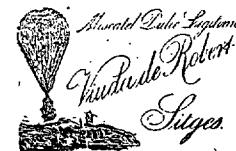 Moscatel Dulce
Viuda de Robert
Sitges.